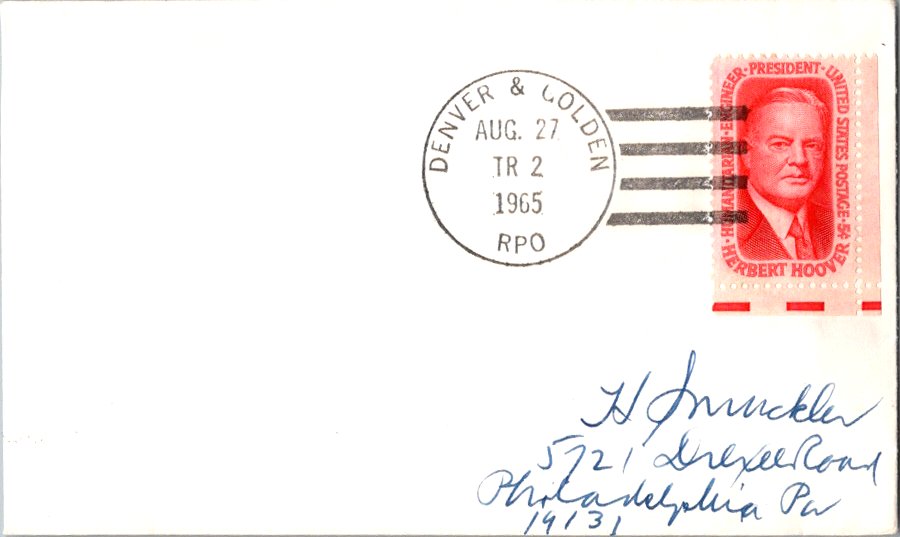 DENVER & GOLDEN
AUG. 27
TR 2
1965
RPO
HUMANITARIAN·ENGINEER·PRESIDENT·UNITED STATES POSTAGE·5¢
HERBERT HOOVER
H Smuckler
5721 Drexel Road
Philadelphia Pa
19131